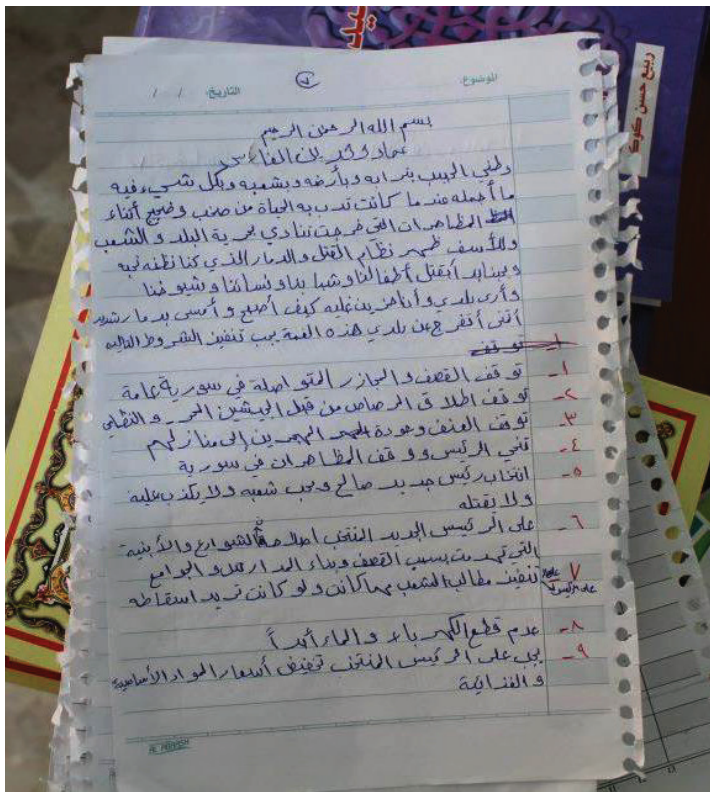 الموضوع:
التاريخ: / /
بسم الله الرحمن الرحيم
وطني الحبيب بترابه وبأرضه وبشعبه وبكل شيء فيه
ما أجمله عندما كانت تدب به الحياة من صخب وضجيج أثناء
المظاهرات التي خرجت تنادي بحرية البلد والشعب
وللأسف ظهر نظام القتل والدمار الذي كنا نظنه نحبه
أطفالنا وشبابنا ونسائنا وشيوخنا
وأرى بلدي وأنا حزين عليه كيف أصبح وأمسى بدمار شديد
بلدي هذه الغمة يجب تنفيذ الشروط التالية
1- توقف
1- توقف القصف والمجازر المتواصلة في سورية عامة
2- توقف اطلاق الرصاص من قبل الجيشين الحر والنظامي
3- توقف العنف وعودة المهجرين إلى منازلهم
4- تنحي الرئيس ووقف المظاهرات في سورية
5- انتخاب رئيس جديد صالح ومحب شعبه ولا يكذب عليه
ولا يقتله
6- على الرئيس الجديد المنتخب اصلاح الشوارع والأبنية
التي تهدمت بسبب القصف وبناء المدارس والجوامع
7 تنفيذ مطالب الشعب مهما كانت ولو كانت تريد اسقاطه
8- عدم قطع الكهرباء والماء أبداً
9- يجب على الرئيس المنتخب تخفيض أسعار المواد الأساسية
والغذائية
ربيع حسن كوكة